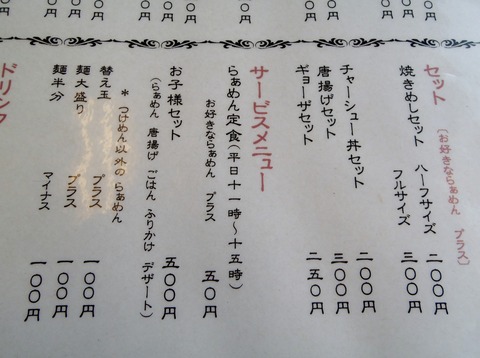 セット
(お好きならぁめん プラス)
焼きめしセット ハーフサイズ 二〇〇円
フルサイズ 三〇〇円
チャーシュー丼セット 二〇〇円
唐揚げセット 三〇〇円
ギョーザセット 二五〇円
サービスメニュー
らぁめん定食(平日十一時~十五時)
お好きならぁめん プラス 五〇円
お子様セット 五〇〇円
(らぁめん 唐揚げ ごはん ふりかけ デザート)
*つけめん以外のらぁめん
替え玉 プラス 一〇〇円
麺大盛り プラス 一〇〇円
麺半分 マイナス 一〇〇円
ドリンク
円 円 円 円 円 円 円 円